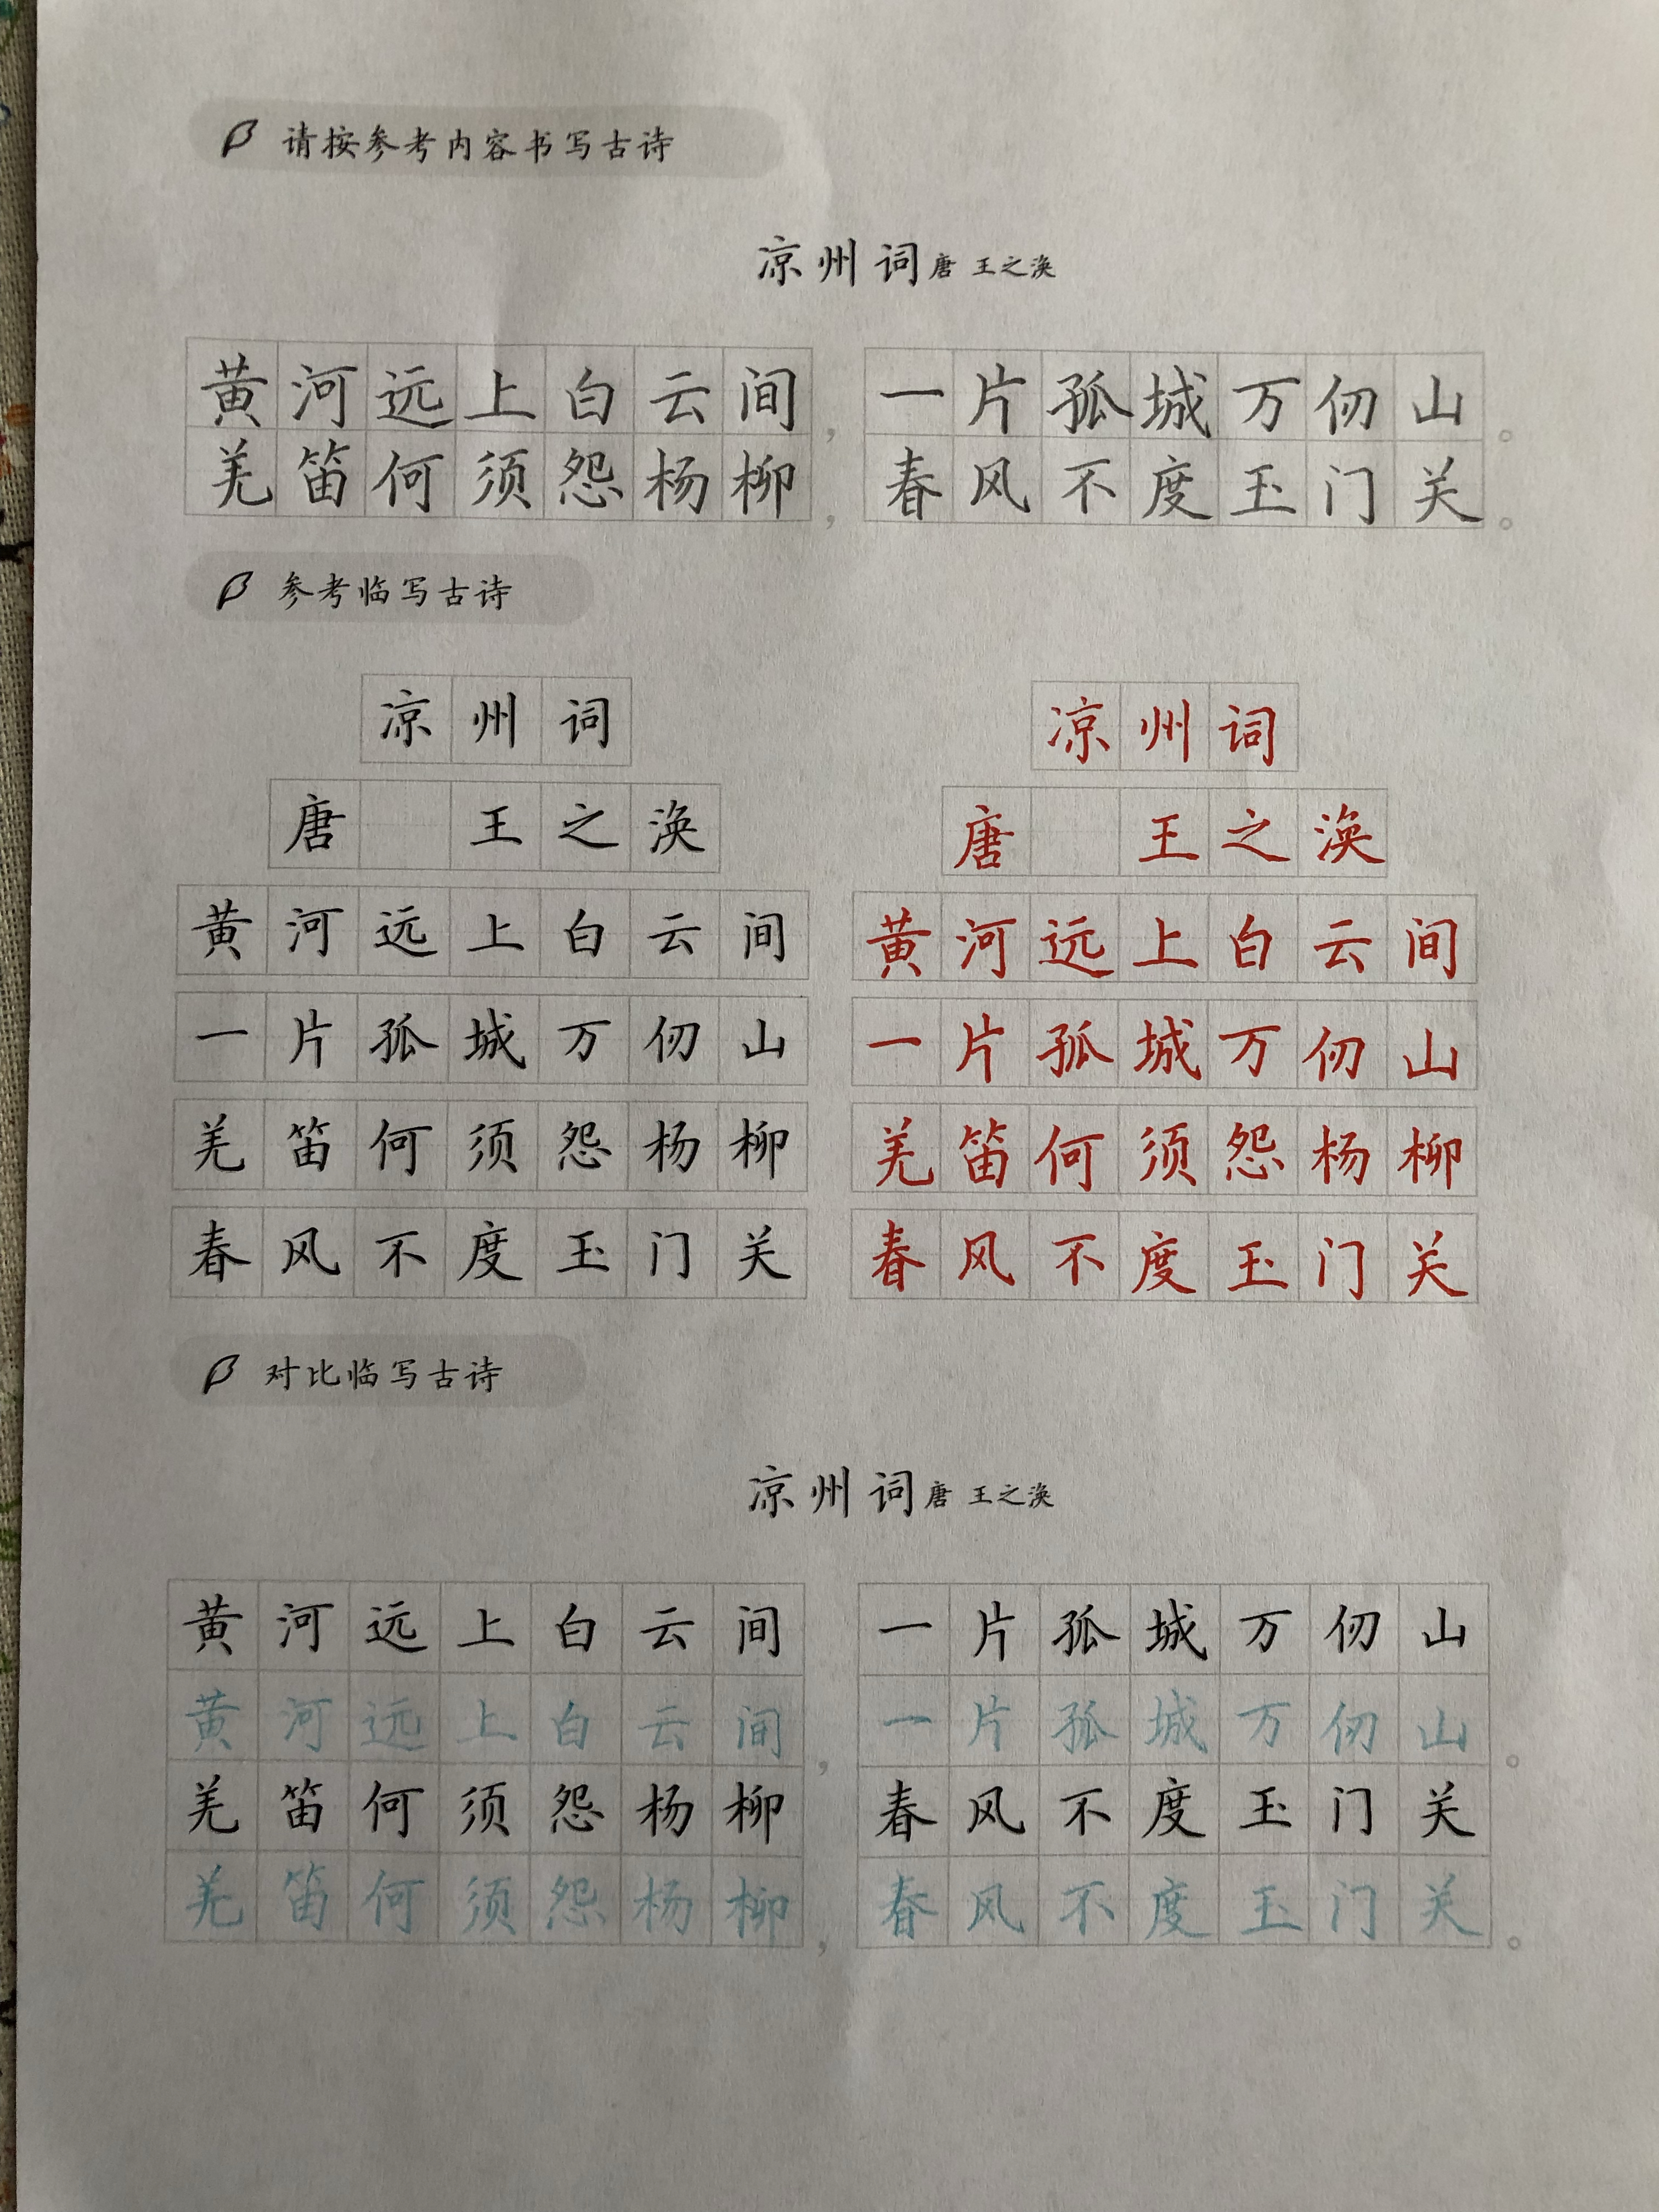 请按参考内容书写古诗
凉州词唐 王之涣
黄河远上白云间，一片孤城万仞山。
羌笛何须怨杨柳，春风不度玉门关。
参考临写古诗
凉州词 凉州词
唐 王之涣 唐 王之涣
黄河远上白云间 黄河远上白云间
一片孤城万仞山 一片孤城万仞山
羌笛何须怨杨柳 羌笛何须怨杨柳
春风不度玉门关 春风不度玉门关
对比临写古诗
凉州词唐 王之涣
黄河远上白云间 一片孤城万仞山
黄河远上白云间，一片孤城万仞山。
羌笛何须怨杨柳 春风不度玉门关
羌笛何须怨杨柳，春风不度玉门关。